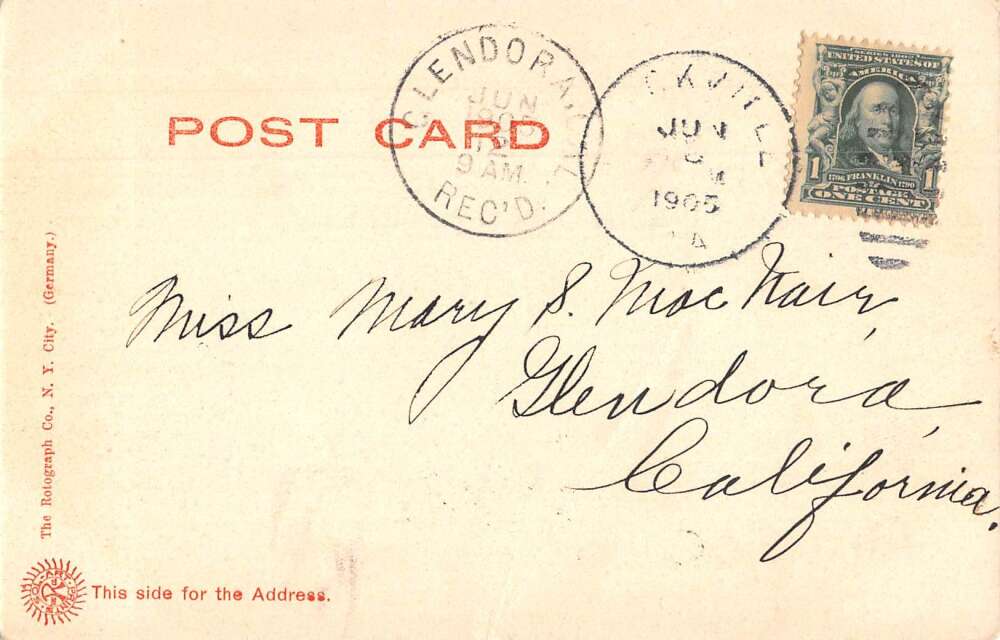 GLENDORA, CAL.
JUN
12
9 AM.
REC'D.
JUN
M
1905
SERIES 1902
UNITED STATES OF
AMERICA
1 1
1706 FRANKLIN 1790
POSTAGE
ONE CENT
POST CARD
Miss Mary S. MacNair,
Glendora,
California.
The Rotograph Co., N. Y. City. (Germany.)
This side for the Address.